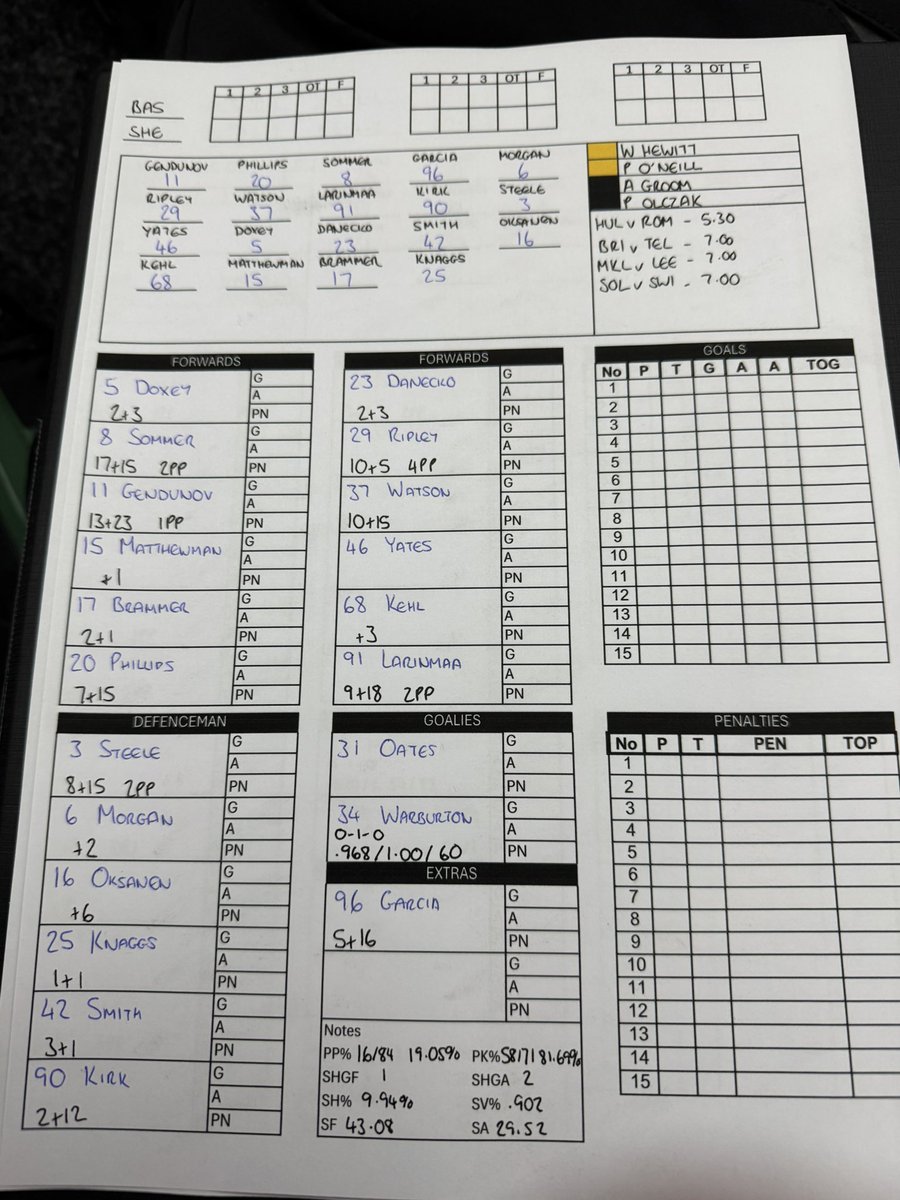 1 2 3 OT F
1 2 3 OT F
1 2 3 OT F
BAS
SHE
GENDUNOV PHILLIPS SOMMER GARCIA MORGAN
11 20 8 96 6
RIPLEY WATSON LARINMAA KIRK STEELE
29 37 91 90 3
YATES DOXEY DANECKO SMITH OKSANEN
46 5 23 42 16
KEHL MATTHEWMAN BRAMMER KNAGGS
68 15 17 25
W HEWITT
P O'NEILL
A GROOM
P OLCZAK
HUL v ROM - 5.30
BRI v TEL - 7.00
MKL v LEE - 7.00
SOL v SWI - 7.00
FORWARDS
5 DOXEY G
A
2+3 PN
8 SOMMER G
A
17+15 2PP PN
11 GENDUNOV G
A
13+23 1PP PN
15 MATTHEWMAN G
A
+1 PN
17 BRAMMER G
A
2+1 PN
20 PHILLIPS G
A
7+15 PN
FORWARDS
23 DANECKO G
A
2+3 PN
29 RIPLEY G
A
10+5 4PP PN
37 WATSON G
A
10+15 PN
46 YATES G
A
PN
68 KEHL G
A
+3 PN
91 LARINMAA G
A
9+18 2PP PN
GOALS
No P T G A A TOG
1
2
3
4
5
6
7
8
9
10
11
12
13
14
15
DEFENCEMAN
3 STEELE G
A
8+15 2PP PN
6 MORGAN G
A
+2 PN
16 OKSANEN G
A
+6 PN
25 KNAGGS G
A
1+1 PN
42 SMITH G
A
3+1 PN
90 KIRK G
A
2+12 PN
GOALIES
31 OATES G
A
PN
34 WARBURTON G
0-1-0 A
.968/1.00/60 PN
EXTRAS
96 GARCIA G
A
5+16 PN
G
A
PN
Notes
PP% 16/84 19.05% PK% 58/71 81.69%
SHGF 1 SHGA 2
SH% 9.94% SV% .902
SF 43.08 SA 29.52
PENALTIES
No P T PEN TOP
1
2
3
4
5
6
7
8
9
10
11
12
13
14
15